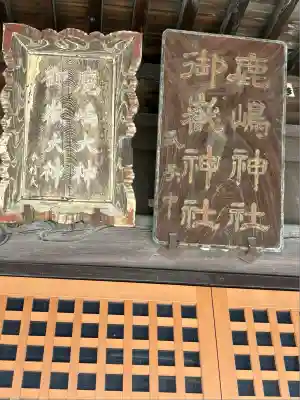 鹿嶋神社
御嶽神社
鹿嶋大神
御嶽大神